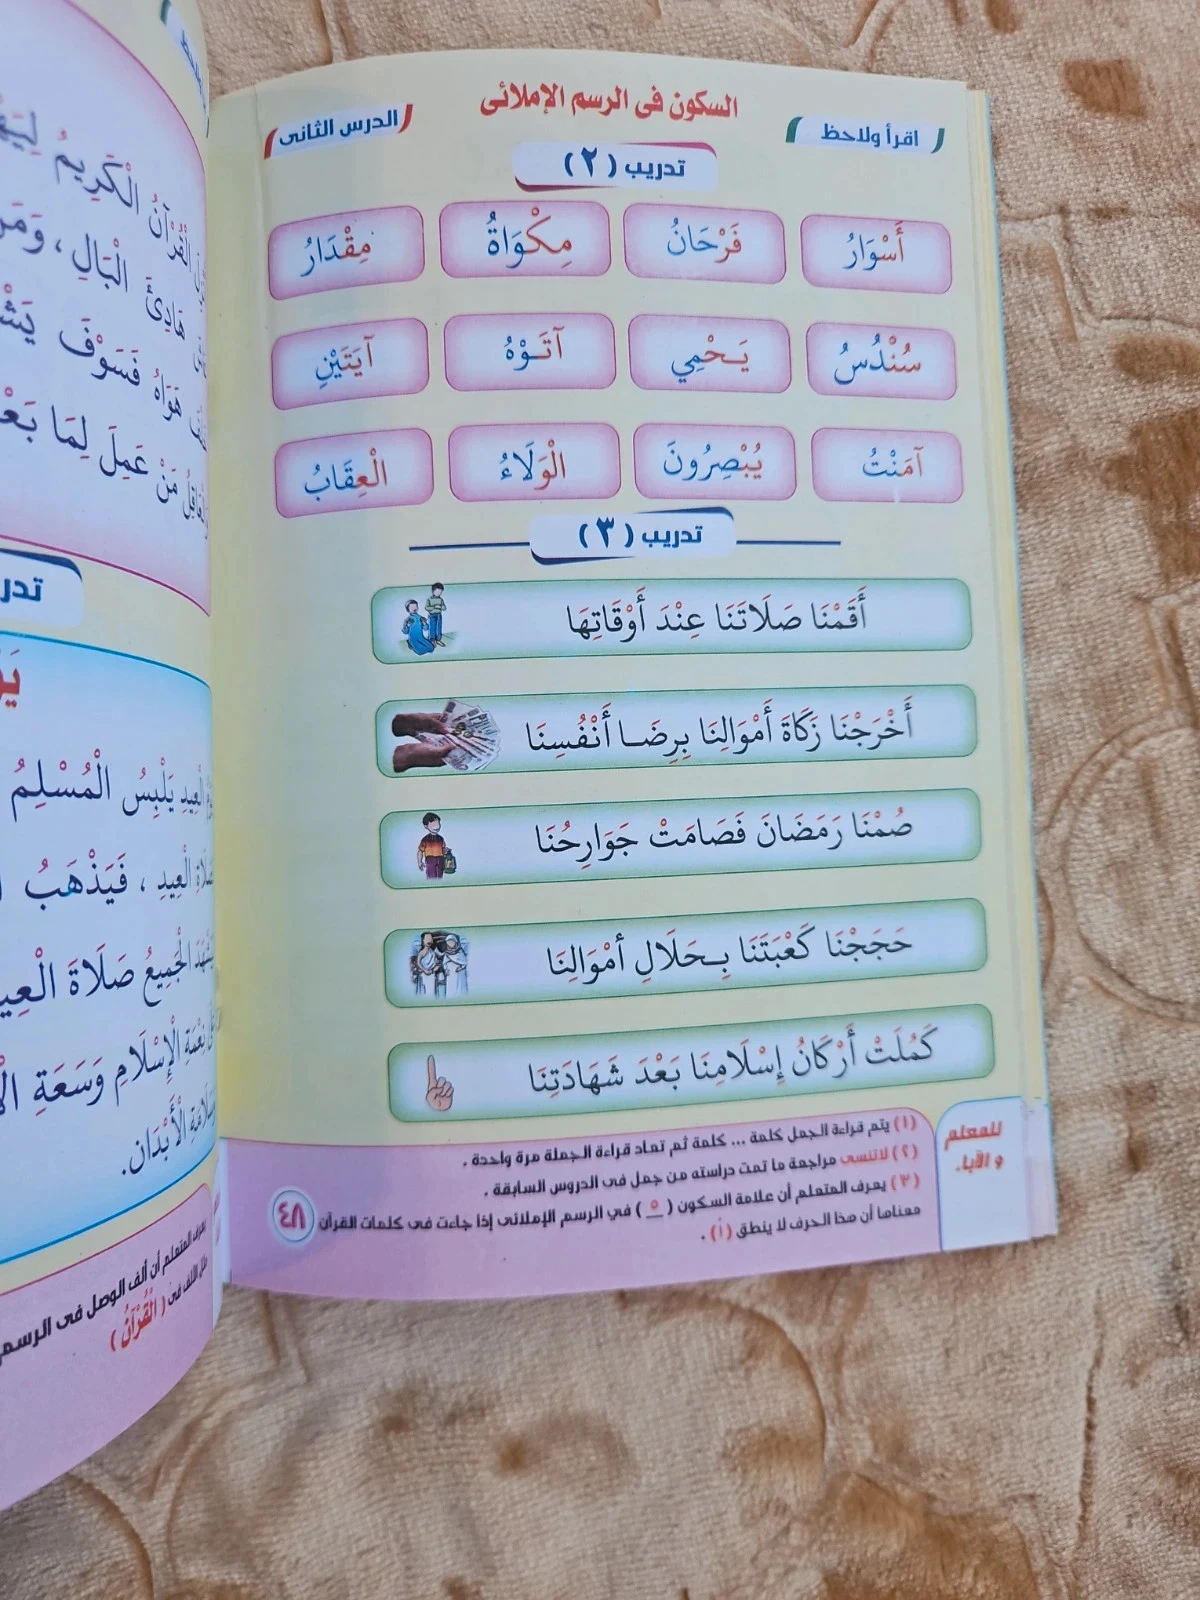 السكون فى الرسم الإملائى
اقرأ ولاحظ
الدرس الثانى
تدريب (٢)
أَسْوَارُ فَرْحَانُ مِكْوَاةُ مِقْدَارُ
سُنْدُسُ يَـحْمِي آتَـوْهُ آيَتَيْنِ
آمَنْتُ يُبْصِرُونَ الْوَلَاءُ الْعِقَابُ
تدريب (٣)
أَقَمْنَا صَلَاتَنَا عِنْدَ أَوْقَاتِهَا
أَخْرَجْنَا زَكَاةَ أَمْوَالِنَا بِرِضَـا أَنْفُسِنَا
صُمْنَا رَمَضَانَ فَصَامَتْ جَوَارِحُنَا
حَجَجْنَا كَعْبَتَنَا بِـحَلَالِ أمْوَالِنَا
كَمُلَتْ أَرْكَانُ إِسْلَامِنَا بَعْدَ شَهَادَتِنَا
للمعلم
و الآباء
(١) يتم قراءة الجمل كلمة ... كلمة ثم تعاد قراءة الجملة مرة واحدة .
(٢) لاتنسى مراجعة ما تمت دراسته من جمل فى الدروس السابقة .
(٣) يعرف المتعلم أن علامة السكون ( ـْ ) في الرسم الإملائى إذا جاءت فى كلمات القرآن
معناها أن هذا الحرف لا ينطق (أ) .
٤٨
الْقُرْآنُ الْكَرِيمُ
هَادِئَ الْبَالِ ، وَمَنْ
هَوَاهُ فَسَوْفَ
مَنْ عَمِلَ لِمَا
الْعِيدِ يَلْبِسُ الْمُسْلِمُ
صَلَاةِ الْعِيدِ ، فَيَذْهَبُ
الْجَمِيعُ صَلَاةَ
نِعْمَةِ الْإِسْلَامِ وَسَعَةِ
الْأَبْدَانِ.
يعرف المتعلم أن ألف الوصل فى الرسم
( الْقُرْآنُ )